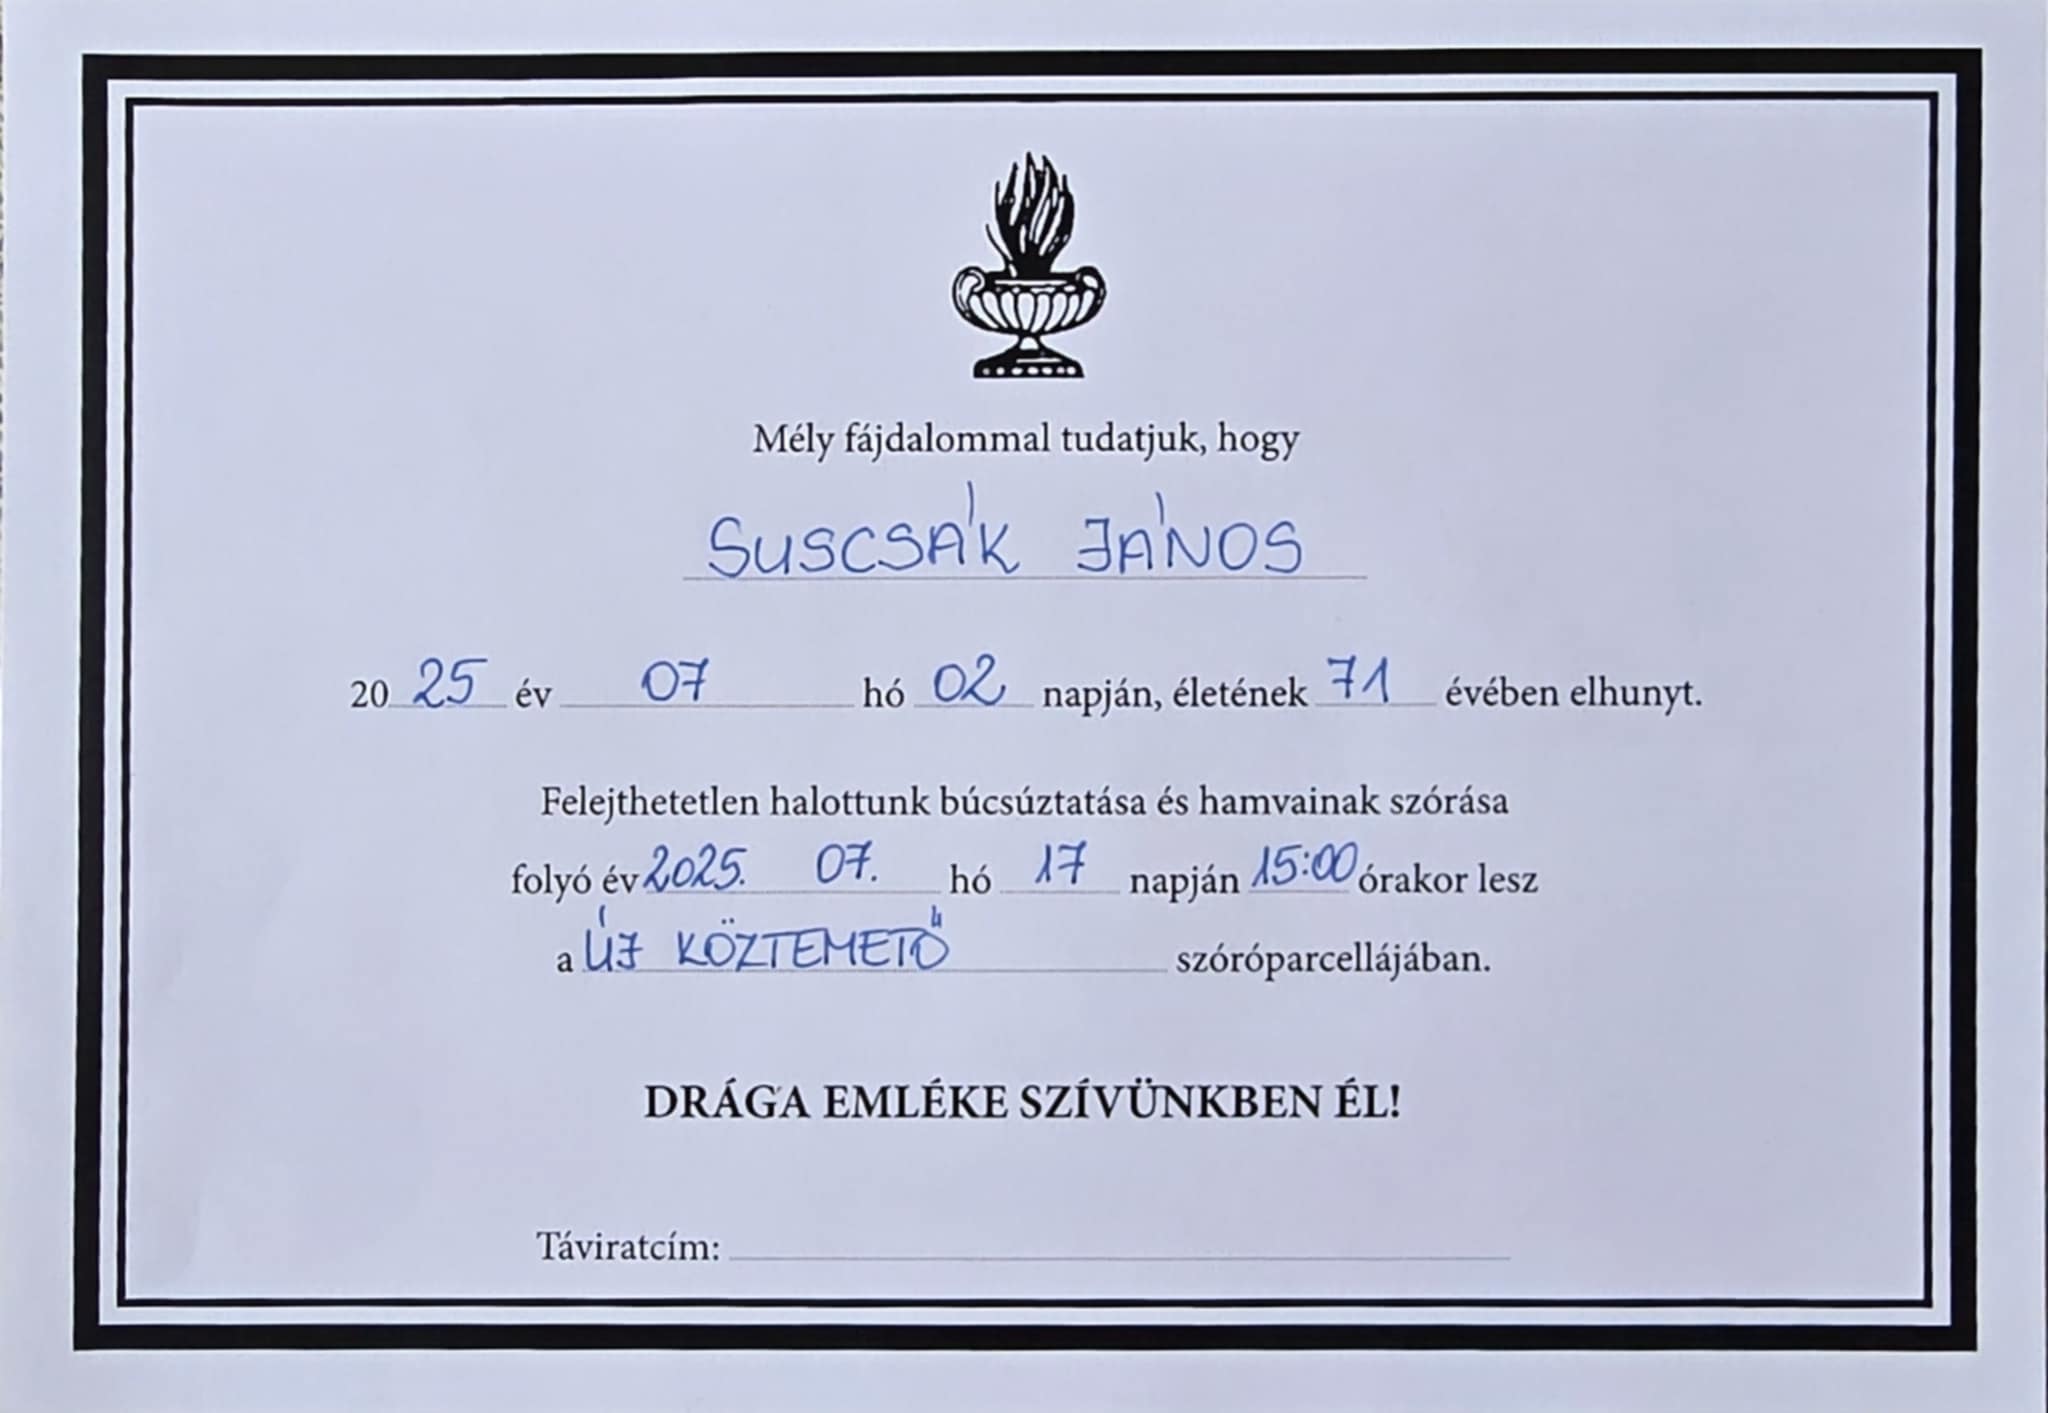 Mély fájdalommal tudatjuk, hogy
SUSCSÁK JÁNOS
20 25 év 07 hó 02 napján, életének 71 évében elhunyt.
Felejthetetlen halottunk búcsúztatása és hamvainak szórása
folyó év 2025. 07. hó 17 napján 15:00 órakor lesz
a ÚJ KÖZTEMETŐ szóróparcellájában.
DRÁGA EMLÉKE SZÍVÜNKBEN ÉL!
Táviratcím: